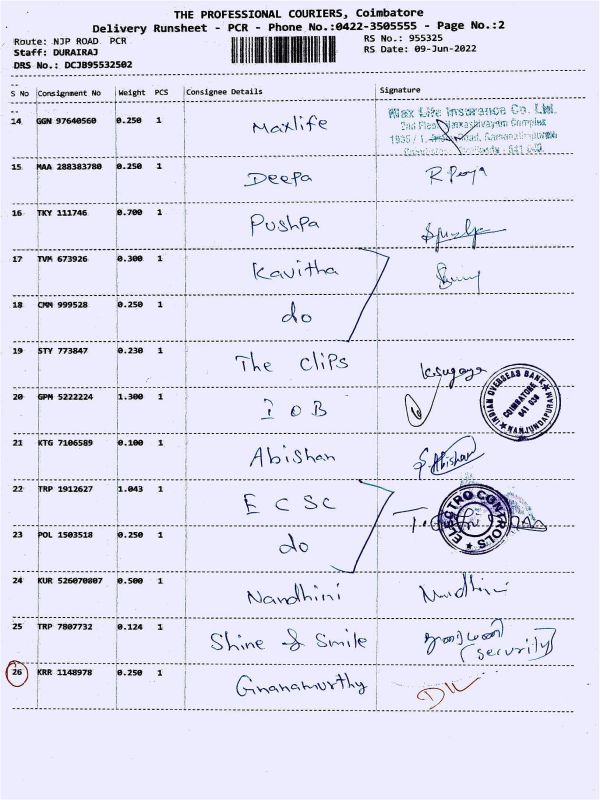 THE PROFESSIONAL COURIERS, Coimbatore
Delivery Runsheet - PCR - Phone No.:0422-3505555 - Page No.:2
Route: NJP ROAD PCR
RS No.: 955325
Staff: DURAIRAJ
RS Date: 09-Jun-2022
DRS No.: DCJB95532502
S No Consignment No Weight PCS Consignee Details Signature
14 GGN 97640560 0.250 1 Maxlife
Max Life Insurance Co. Ltd.
15 MAA 288383780 0.250 1 Deepa
16 TKY 111746 0.700 1 Pushpa
17 TVM 673926 0.300 1 Kavitha
18 CMM 999528 0.250 1 do
19 STY 773847 0.230 1 The Clips
20 GPM 5222224 1.300 1 I O B
INDIAN OVERSEAS BANK
COIMBATORE
641 036
NANJUNDAPURAM
21 KTG 7106589 0.100 1 Abishan S. Abishan
22 TRP 1912627 1.043 1 E C S C
ELECTRO CONTROLS
23 POL 1503518 0.250 1 do
24 KUR 526070807 0.500 1 Nandhini Nandhini
25 TRP 7807732 0.124 1 Shine & Smile
(security)
26 KRR 1148978 0.250 1 Gnanamurthy